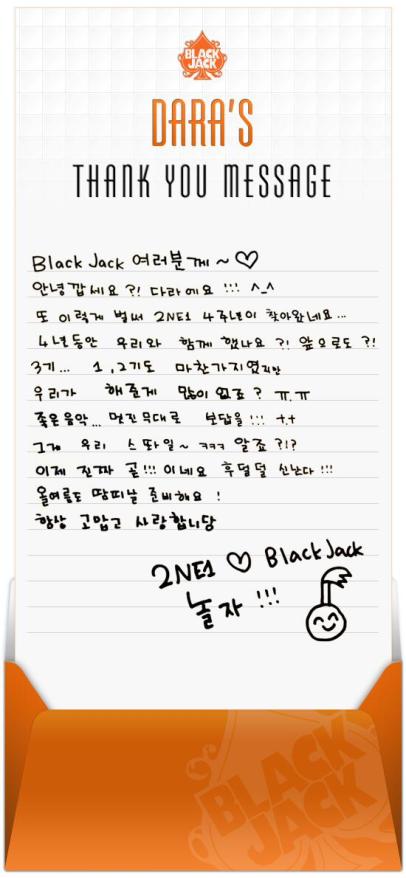 BLACK
JACK
DARA'S
THANK YOU MESSAGE
Black Jack 여러분께 ~ ♡
안녕깝세요 ?! 다라에요 !!! ^_^
또 이렇게 벌써 2NE1 4주년이 찾아왔네요...
4년동안 우리와 함께 했나요 ?! 앞으로도 ?!
3기... 1,2기도 마찬가지였지만
우리가 해준게 많이 없죠 ? ㅠ.ㅠ
좋은음악... 멋진무대로 보답을 !!! ++
그게 우리 스타일~ ㅋㅋㅋ 알죠 ?!?
이제 진짜 곧!!! 이네요 후덜덜 신난다 !!!
올여름도 땀띠날 준비해요 !
항상 고맙고 사랑합니당
2NE1 ♡ BlackJack
놀자 !!!
BLACK
JACK